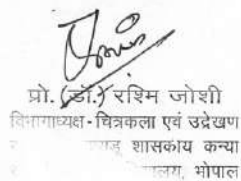 प्रो. (डॉ.) रश्मि जोशी
विभागाध्यक्ष - चित्रकला एवं उद्रेखण
शासकीय कन्या
भोपाल